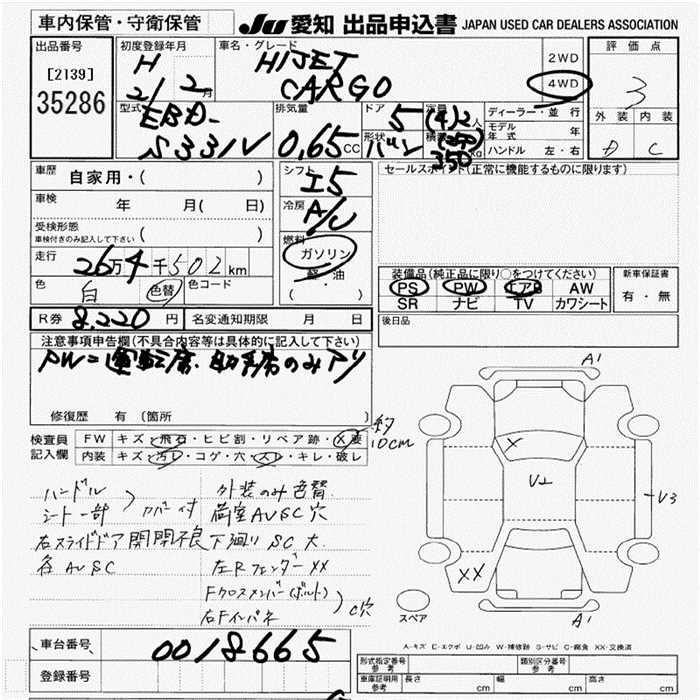 車内保管・守衛保管
JU 愛知 出品申込書 JAPAN USED CAR DEALERS ASSOCIATION
出品番号
[2139]
35286
初度登録年月
H
21/2月
車名・グレード
HIJET
CARGO
2WD
4WD
評価点
3
外装 内装
D C
型式
EBD-
S331V
排気量
0.65CC
ドア
5
形状
バン
定員
(4)2人
積載
(250)
350kg
ディーラー・並行
モデル年式 年
ハンドル 左・右
車歴
自家用・( )
車検
年 月( 日)
受検形態
車検付きのみ記入して下さい ( )
走行
26万4千502km
色
白
色替
色コード
シフト
I5
冷房
A/C
燃料
ガソリン
軽・油
( )
セールスポイント(正常に機能するものに限ります)
装備品(純正品に限り○をつけてください)
PS PW エアB AW
SR ナビ TV カワシート
新車保証書
有・無
R券 8.220円
名変通知期限 月 日
後日品
注意事項申告欄(不具合内容等は具体的に記入して下さい)
PW=運転席・助手席のみアリ
修復歴 有(箇所 )
検査員
記入欄
FW キズ・飛石・ヒビ割・リペア跡・X要
内装 キズ・汚レ・コゲ・穴・スレ・キレ・破レ
約
10cm
ハンドル
シート一部
)カバー付
右スライドドア開閉不良
各AVSC
外装のみ色替
荷室AVSC穴
下廻りSC大
左RフェンダーXX
Fクロスメンバー(ボルト)
右Fインパネ
)C穴
A1
X
V2
V3
XX
A1
スペア
A-キズ E-エクボ U-凹み W-補修跡 S-サビ C-腐食 XX-交換済
車台番号
0018665
登録番号
形式指定番号
参考
類別区分番号
参考
車庫証明用
参考
長さ cm
幅 cm
高さ cm